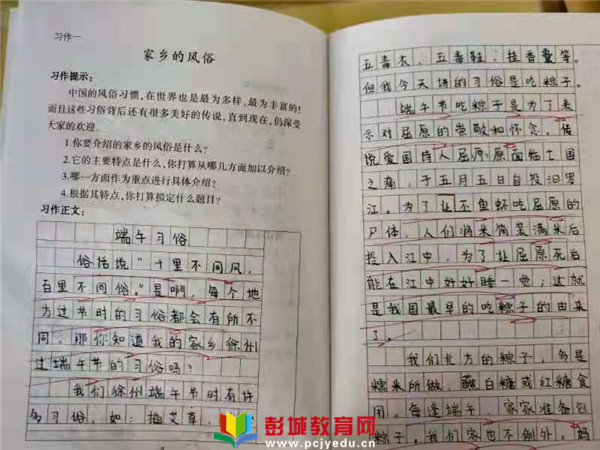 习作一
家乡的风俗
习作提示：
中国的风俗习惯，在世界也是最为多样，最为丰富的！
而且这些习俗背后还有很多美好的传说，直到现在，仍深受
大家的欢迎。
1.你要介绍的家乡的风俗是什么？
2.它的主要特点是什么，你打算从哪几方面加以介绍？
3.哪一方面作为重点进行具体介绍？
4.根据其特点，你打算拟定什么题目？
习作正文：
端午习俗
俗话说“十里不同风，
百里不同俗。”是啊，每个地
方过节时的习俗都会有所不
同，那你知道我的家乡徐州
过端午节的习俗吗？
我们徐州端午节时有许
多习俗，如：插艾草，
五毒衣、五毒鞋；挂香囊等。
但我今天讲的习俗是吃粽子。
端午节吃粽子是为了表
示对屈原的崇敬和怀念。传
说爱国诗人屈原，原面临亡国
之痛，于五月五日自投汨罗
江。为了让不鱼虾吃屈原的
尸体，人们将米筒装满米后
投入江中，为了让屈原死后
能在江中好好睡一觉；这就
是我国最早的吃粽子的由来
了。
我们北方的粽子，多是
糯米所做，蘸白糖或红糖食
用。每逢端午，家家准备包
粽子。我们家也不例外。妈
彭城教育网
www.pcjyedu.cn